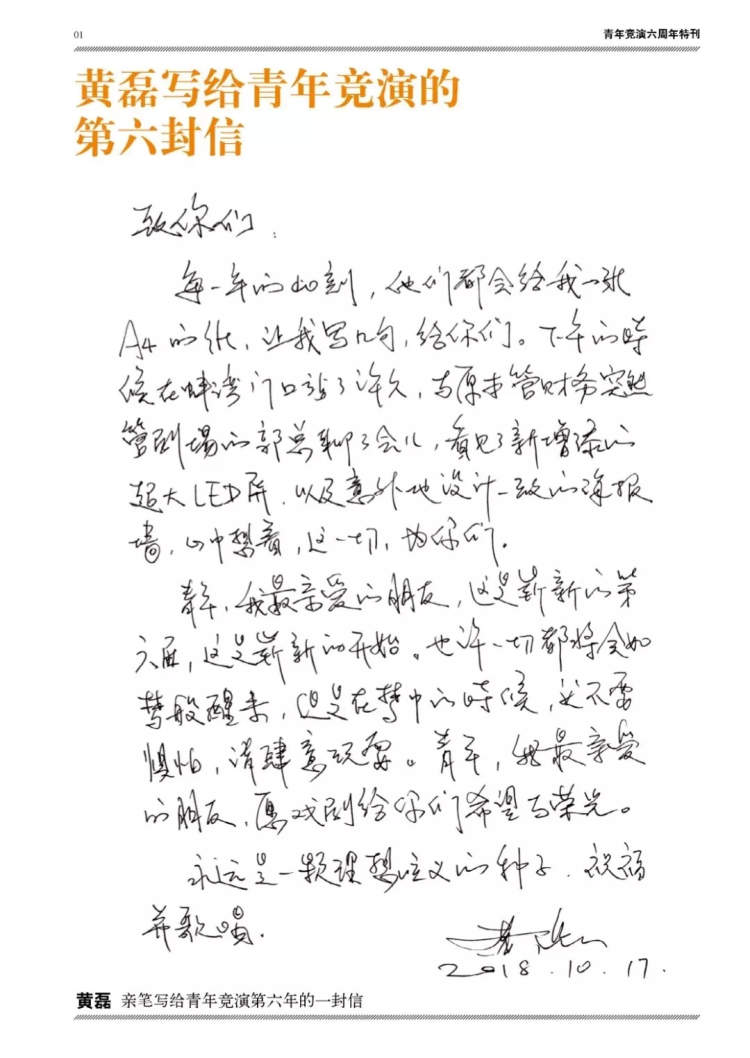 01
青年竞演六周年特刊
黄磊写给青年竞演的
第六封信
致你们:
每一年的此刻,他们都会给我一张
A4的纸,让我写几句,给你们。下午的时
候在蚌湾门口站了许久,与原本管财务突然
管剧場的郭总聊了会儿,看见了新增添的
超大LED屏,以及意外地设计一致的海报
墙,心中想着,这一切,为你们。
青年,我最亲爱的朋友,这是崭新的第
六届,这是崭新的开始。也许一切都将会如
梦般醒来,但是在梦中的時候,必不需
惧怕,请肆意玩耍。青年,我最亲爱
的朋友,愿戏剧给你们希望与荣光。
永远是一颗理想主义的种子,祝福
并歌唱.
黄磊
2018.10.17.
黄磊 亲笔写给青年竞演第六年的一封信